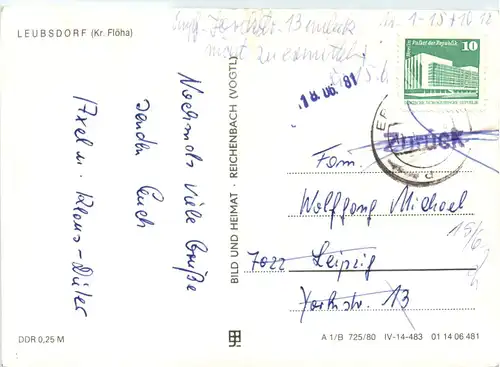 LEUBSDORF (Kr. Flöha)
Nochmals viele Grüße
senden Euch
Axel u. Klaus-Dieter
DDR 0,25 M
BILD UND HEIMAT · REICHENBACH (VOGTL)
nicht zu ermitteln
18.06.81
Berlin Palast der Republik
10
ZURÜCK
Fam.
Wolfgang Michael
15/6
7022 Leipzig
Yorkstr. 13
A 1/B 725/80 IV-14-483 01 14 06 481